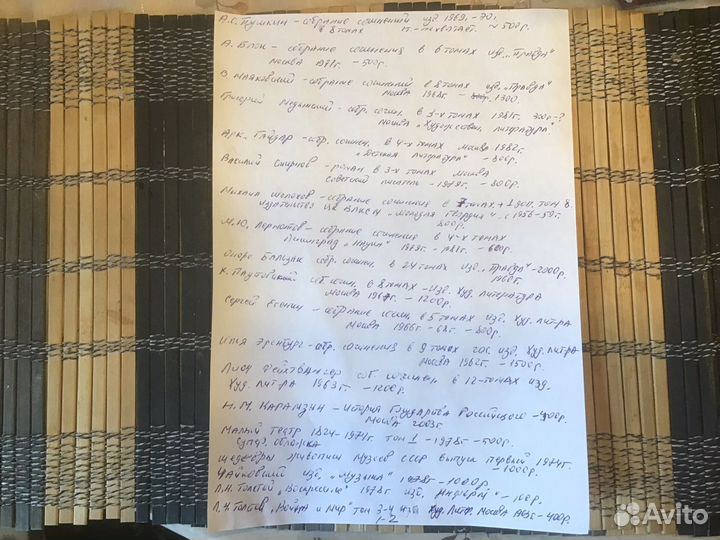 А.С. Пушкин - собрание сочинений изд 1969г. - 70г.
в 8 томах ~ 500р.
А. Блок - собрание сочинения в 6 томах изд. „Правда"
Москва 1971г. - 500р.
В. Маяковский - собрание сочинений в 8 томах изд. „Правда"
Москва 1968г. - 1300.
Григорий Медынский - обр. сочин. в 3-х томах 1981г. 300р-?
Москва „Художествен. литература"
Арк. Гайдар - обр. сочинен. в 4-х томах Москва 1982г.
„Детская литература" - 800р.
Василий Смирнов - роман в 3-х томах Москва
Советский писатель - 1979г. - 800р.
Михаил Шолохов - собрание сочинения в 7 томах, + 1 доп. том 8
издательство ЦК ВЛКСМ „Молодая Гвардия" с 1956-59г.
800р.
М.Ю. Лермонтов - собрание сочинение в 4-х томах
Ленинград „Наука" 1979г. - 1981г. - 600р.
Оноре Бальзак собр. сочинен. в 24 томах изд. „Правда" - 2000р.
1960г.
К. Паустовский соб. сочин. в 8 томах - изд. Худ. литература
Москва 1967г. - 1200р.
Сергей Есенин - собрание сочин. в 5 томах изд. Худ. лит-ра
Москва 1966г. - 68г. - 800р.
Илья Эренбург - обр. сочинения в 9 томах гос. изд. Худ. лит-ра
Москва 1962г. - 1500р.
Лион Фейхтвангер соб. сочинен. в 12-томах изд.
Худ. лит-ра 1963г. - 1200р.
Н.М. Карамзин - История Государства Российского - 400р.
Москва 2003г.
Малый театр 1824-1974г. том 1 - 1978г - 500р.
суперобложка
Шедевры живописи музеев СССР выпуск первый 1974г.
- 1000р.
Чайковский изд. „Музыка" 1978г - 1000р.
Л.Н. Толстой „Воскресение" 1978г. изд. - 100р.
Л.Н. Толстой „Война и мир" том 3-4 изд. Худ. Лит. Москва - 400р.
1-2
Avito